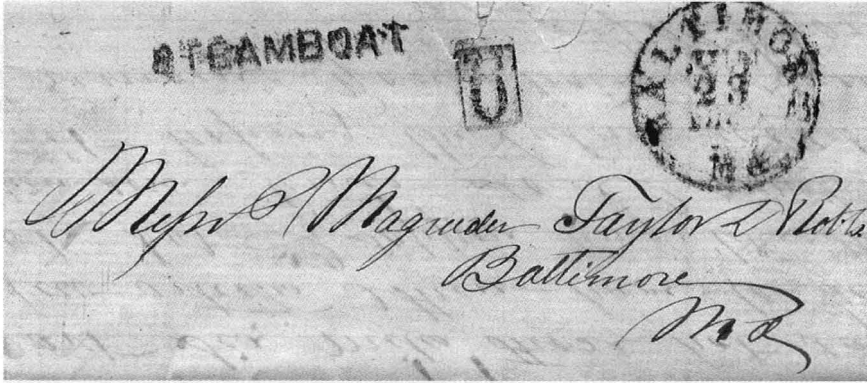 STEAMBOAT
6
BALTIMORE
JUN
23
Md.
Messrs Magruder Taylor & Robts
Baltimore
Md